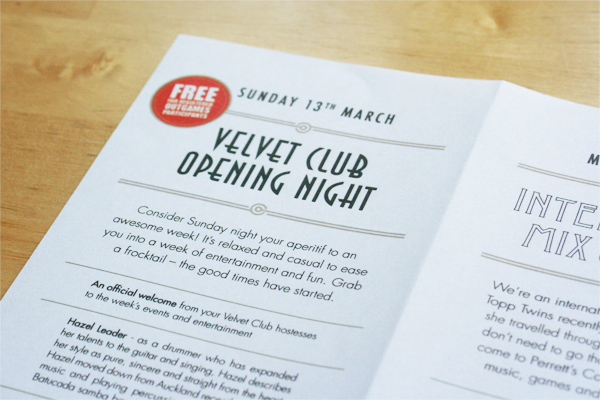 FREE
FOR REGISTERED
OUTGAMES
PARTICIPANTS
SUNDAY 13TH MARCH
VELVET CLUB
OPENING NIGHT
Consider Sunday night your aperitif to an
awesome week! It's relaxed and casual to ease
you into a week of entertainment and fun. Grab
a frocktail – the good times have started.
An official welcome from your Velvet Club hostesses
to the week's events and entertainment
Hazel Leader - as a drummer who has expanded
her talents to the guitar and singing, Hazel describes
her style as pure, sincere and straight from the heart.
Hazel moved down from Auckland recently
music and playing percussion
Batucada samba
M
INTE
MIX
We're an internat
Topp Twins recently
she travelled through
don't need to go th
come to Perrett's Co
music, games and